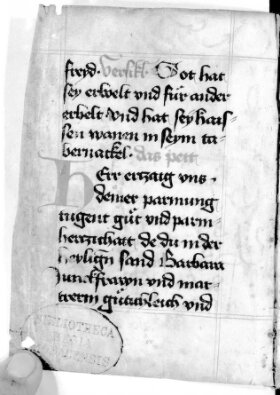 freyd. Versikl. Got hat
sey erwelt vnd für ander
erbelt vnd hat sey hais-
sen wanen in seym ta-
bernackel. das pett
Herr erczaig vns
deiner parmung
tugent güt vnd parm-
herczichait de du in der
heyligen sand Barbara
Junckfrawn vnd mar-
trerin gütichleich vnd
BIBLIOTHECA
REGIA